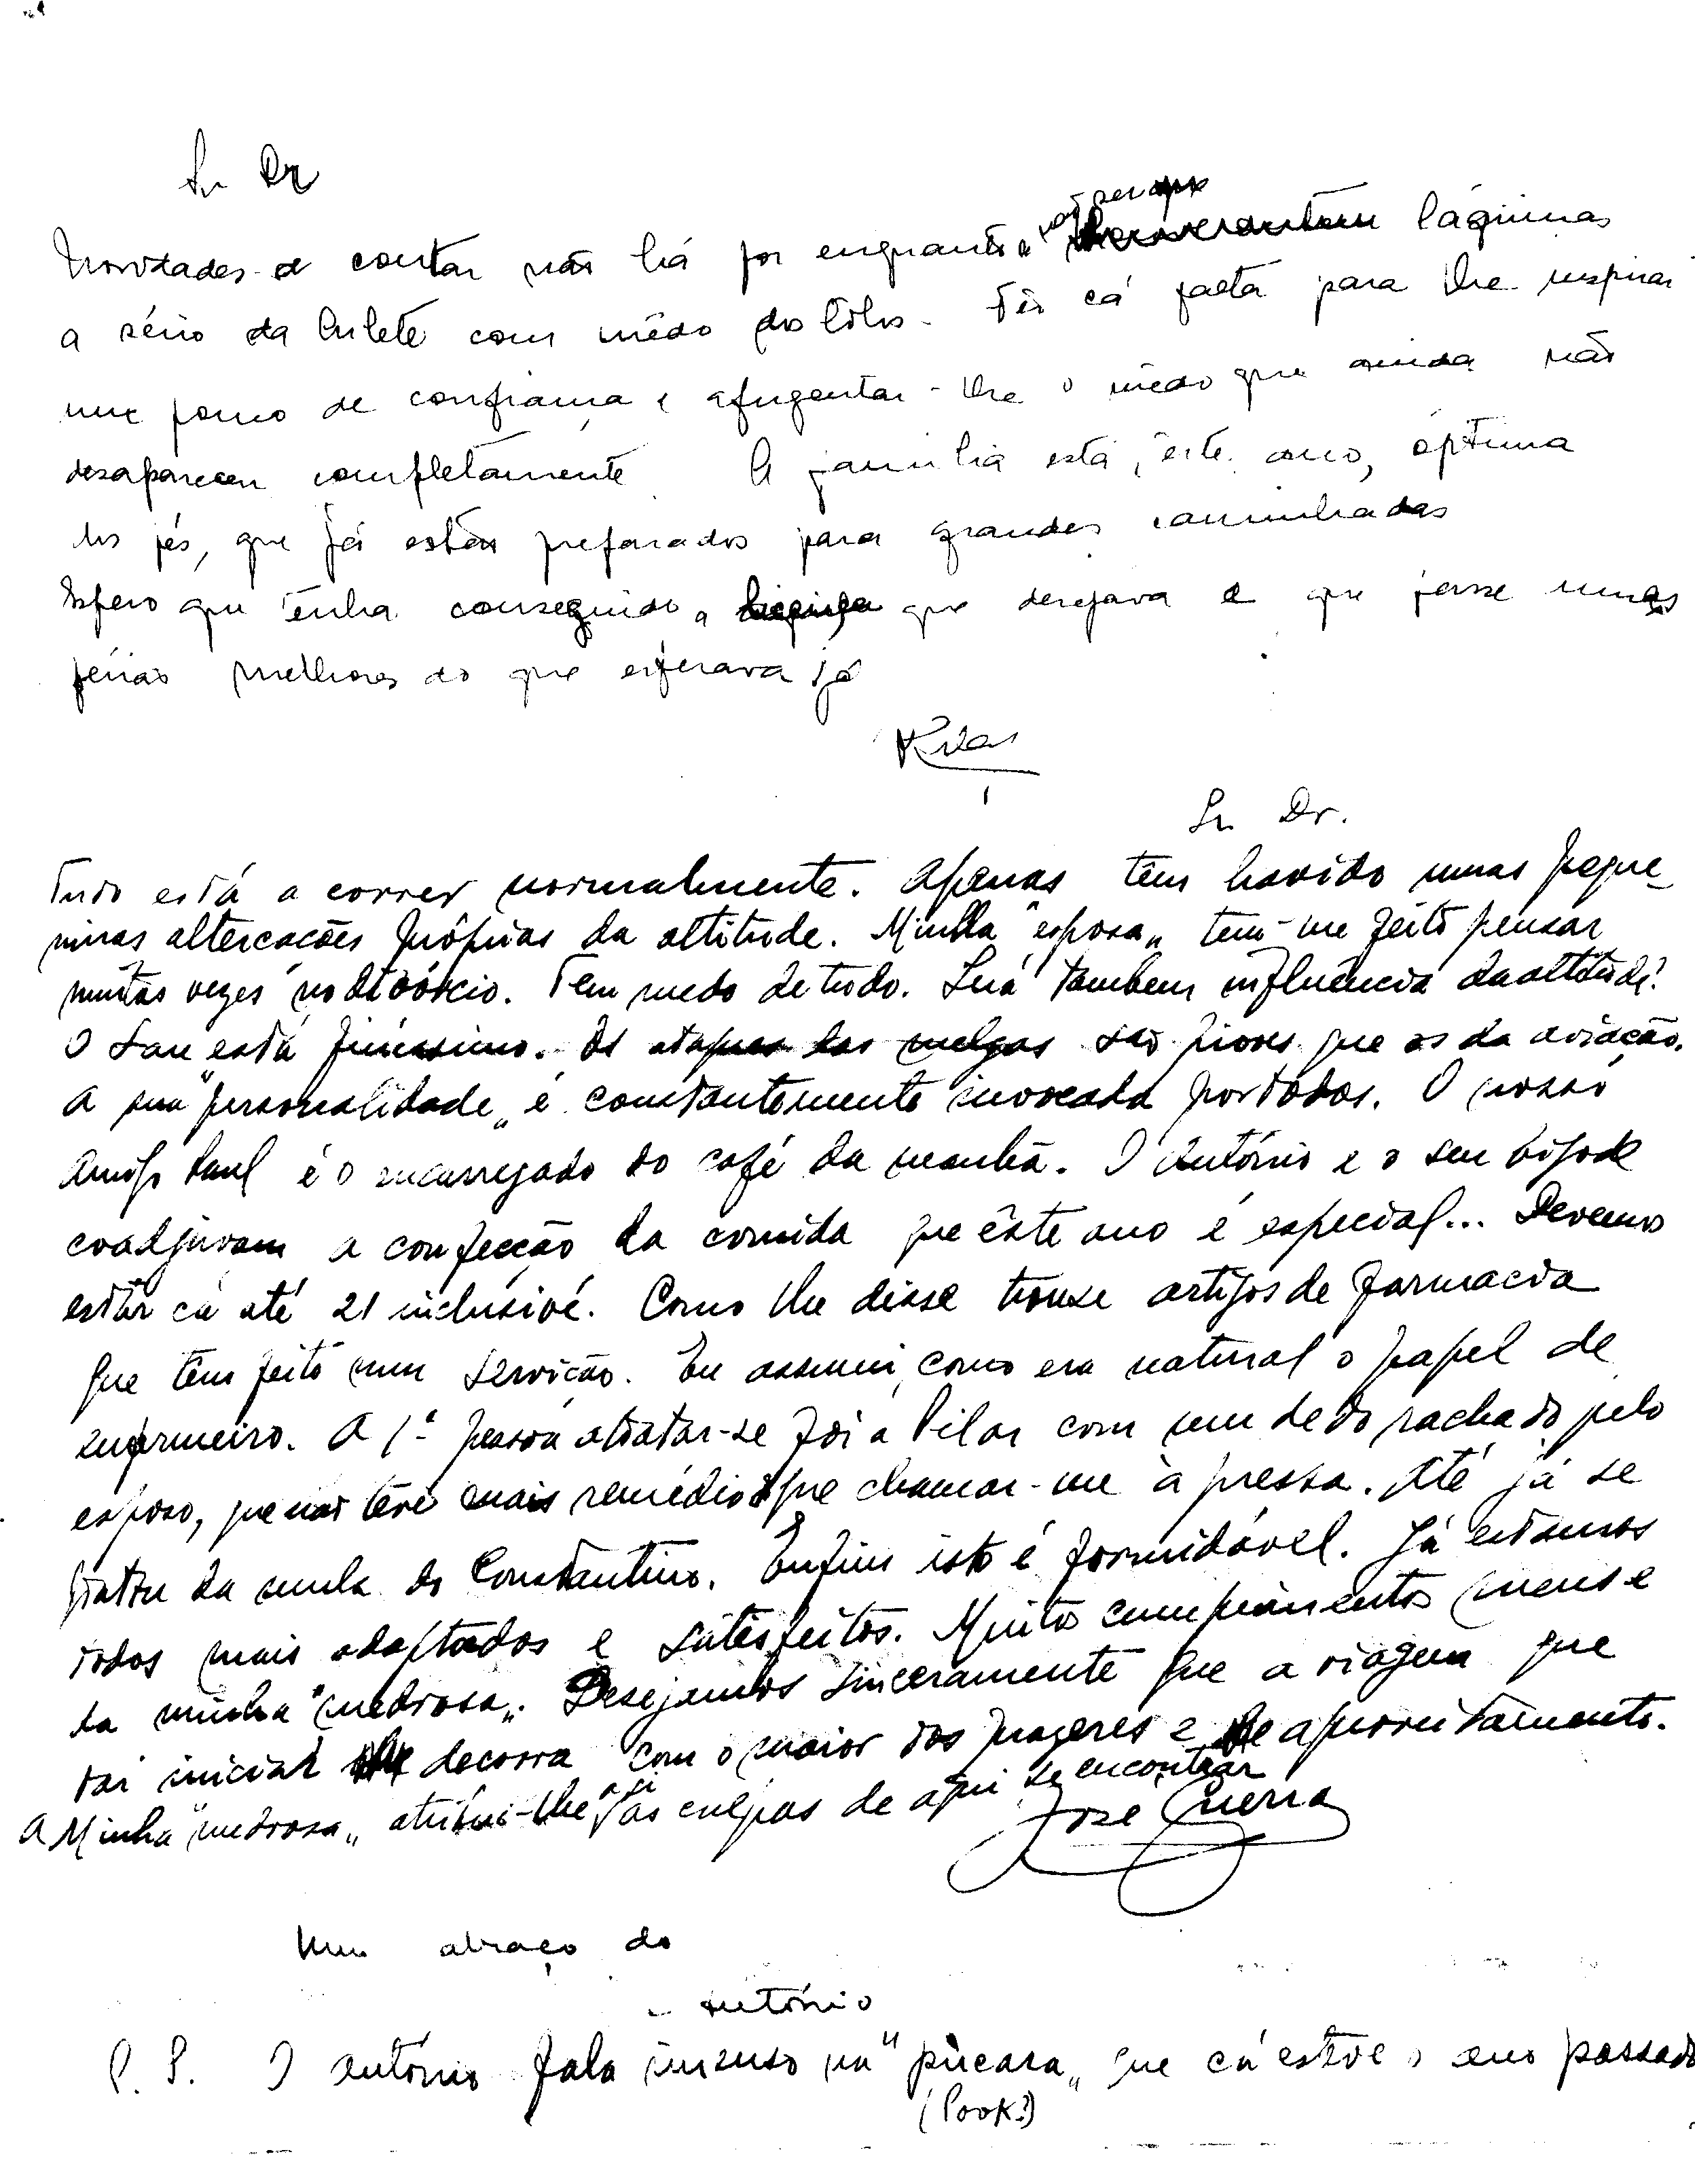 Sr Dr
Novidades a contar não há por enquanto a não ser as lágrimas
a sério da Arlete com mêdo dos lôbos. Fês cá falta para lhe inspirar
um pouco de confiança e afugentar-lhe o mêdo que ainda não
desapareceu completamente A família está, êste ano, óptima
dos pés, que já estão preparados para grandes caminhadas
Espero que tenha conseguido a que desejava e que passe umas
férias melhores do que esperava já
Sr. Dr.
Tudo está a correr normalmente. Apenas têm havido umas peque-
ninas altercacões próprias da altitude. Minha "esposa" tem-me feito pensar
muitas vezes no divórcio. Tem medo de tudo. Será tambem influência da altitude?
O San está finíssimo. Os ataques das melgas são piores que os da aviação.
A sua "personalidade" é constantemente invocada por todos. O nosso
amigo Saul é o encarregado do café da manhã. O António e o seu bigode
coadjuvam a confecção da comida que êste ano é especial... Devemos
estar cá até 21 inclusivé. Como lhe disse trouxe artigos de farmacia
que têm feito um servicão. Eu assumi, como era natural o papel de
enfermeiro. A 1ª pessoa a tratar-se foi a Pilar com um dedo rachado pelo
esposo, que não teve mais remédio que chamar-me à pressa. Até já se
tratou da mula do Constantino. Enfim isto é formidável. Já estamos
todos mais adaptados e satisfeitos. Muitos cumprimentos meus e
da minha "medrosa". Desejamos sinceramente que a viagem que
vai iniciar decorra com o maior dos prazeres e aproveitamento.
A Minha "medrosa" atribui-lhe a si as culpas de aqui se encontrar
José Guerra
Um abraço do
António
P. S. O António fala imenso na "púcara" que cá esteve o ano passado
(Pook?)